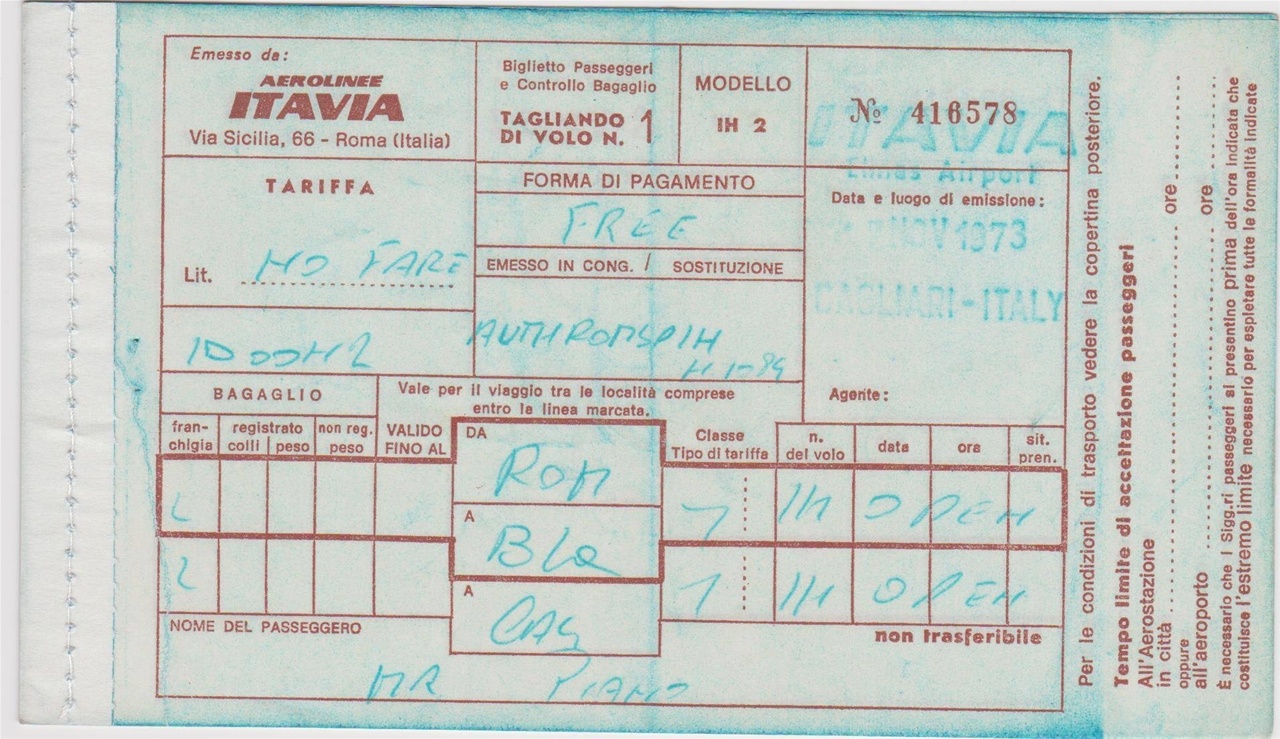 Emesso da:
AEROLINEE
ITAVIA
Via Sicilia, 66 - Roma (Italia)
Biglietto Passeggeri
e Controllo Bagaglio
TAGLIANDO
DI VOLO N. 1
MODELLO
IH 2
№ 416578
ITAVIA
Elmas Airport
TARIFFA
Lit. NO FARE
FORMA DI PAGAMENTO
FREE
EMESSO IN CONG. / SOSTITUZIONE
Data e luogo di emissione:
NOV 1973
CAGLIARI-ITALY
Agente:
BAGAGLIO
Vale per il viaggio tra le località comprese
entro la linea marcata.
fran-
chigia
registrato
colli peso
non reg.
peso
VALIDO
FINO AL
DA
ROM
A
BLQ
A
CAG
Classe
Tipo di tariffa
n.
del volo
data
ora
sit.
pren.
Y IH OPEN
Y IH OPEN
NOME DEL PASSEGGERO
non trasferibile
MR PIANO
Per le condizioni di trasporto vedere la copertina posteriore.
Tempo limite di accettazione passeggeri
All'Aerostazione
in città ore
oppure
all'aeroporto ore
È necessario che i Sigg.ri passeggeri si presentino prima dell'ora indicata che
costituisce l'estremo limite necessario per espletare tutte le formalità indicate